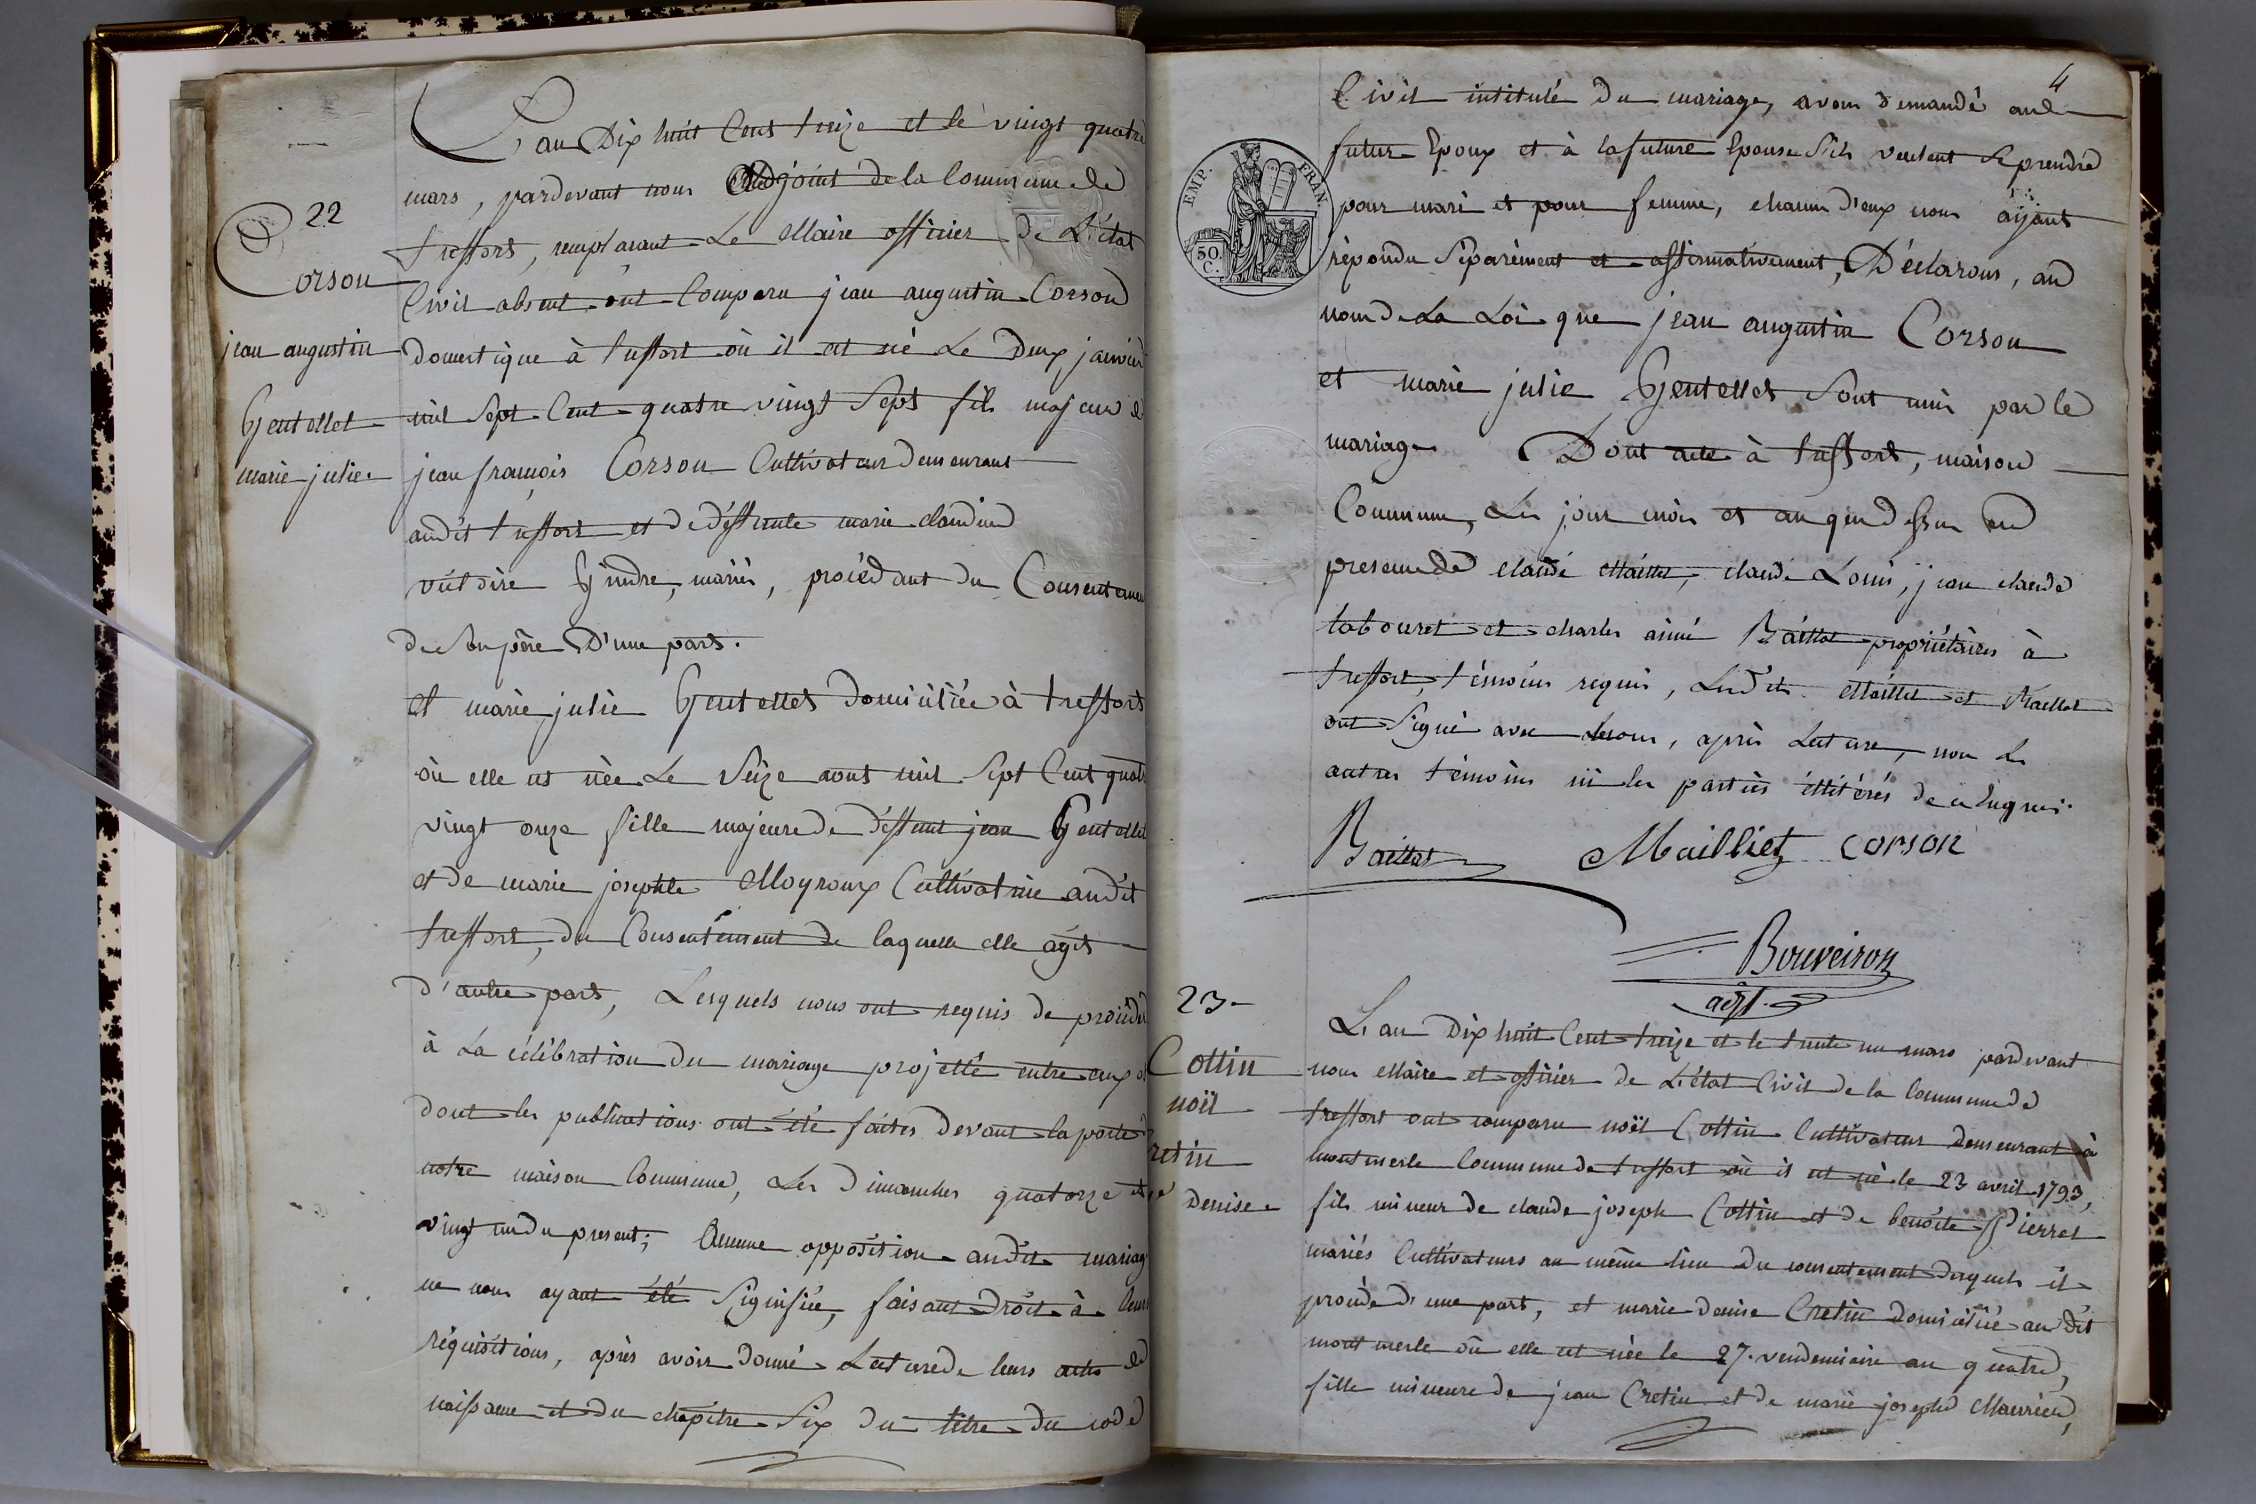 22
Corson
jean augustin
Gentellet
marie julie
L'an Dix huit Cent treize et le vingt quatre
mars, pardevant nous Adjoint de la Commune de
treffort, remplacant Le Maire officier de L'état
Civil absent ont Comparu jean augustin Corson
domestique à treffort où il est né Le Deux janvier
mil Sept Cent quatre vingt Sept fils majeur de
jean françois Corson Cultivateur demeurant
audit treffort et de déffunte marie claudine
Gindre, mariés, procédant du Consentement
de Son père D'une part.
et marie julie Gentellet domiciliée à treffort
où elle est née Le Seize aout mil Sept Cent quatre
vingt onze fille majeure de déffunt jean Gentellet
et de marie josephte Moyroux Cultivatrice audit
treffort, du Consentement de laquelle elle agit
d'autre part, Lesquels nous ont requis de procéder
à La célébration du mariage projetté entre eux et
dont les publications ont été faites devant la porte de
notre maison Commune, Les Dimanches quatorze et
vingt un du present; Aucune opposition audit mariage
ne nous ayant été Signifiée, faisant Droit à Leurs
réquisitions, après avoir donné Lecture de leurs actes de
naissance et du chapitre Six du titre du code
4
Civil intitulé Du mariage, avons demandé au
futur Epoux et à la future Epouse S'ils veulent Se prendre
pour mari et pour femme, chacun d'eux nous aÿant
répondu Séparément et affirmativement, Déclarons, au
nom de La Loi que jean augustin Corson
et marie julie Gentellet Sont unis par le
mariage Dont acte à treffort, maison
Commune, Les jour mois et an que dessus en
presence de claude Maillet, claude Louis, jean claude
tabouret et charles aimé Baillat propriétaires à
treffort, témoins requis, Lesdits Maillet et Baillat
ont Signé avec nous, après Lecture, non les
autres témoins ni les parties illitérés de ce Enquis.
Baillat Mailliet corson
Bouveiron
adjt.
EMP. FRAN.
50. C.
23
Cottin
noël
Cretin
Denise
L'an Dix huit Cent treize et le trente un mars pardevant
nous Maire et officier de L'état Civil de la Commune de
treffort ont comparu noël Cottin Cultivateur demeurant à
montmerle Commune de treffort où il est né le 23 avril 1793,
fils mineur de claude joseph Cottin et de benoite Pierret
mariés Cultivateurs au même lieu du consentement desquels il
procède d'une part, et marie denise Cretin domiciliée audit
mont merle où elle est née le 27. vendemiaire an quatre,
fille mineure de jean Cretin et de marie josephe Maurier,